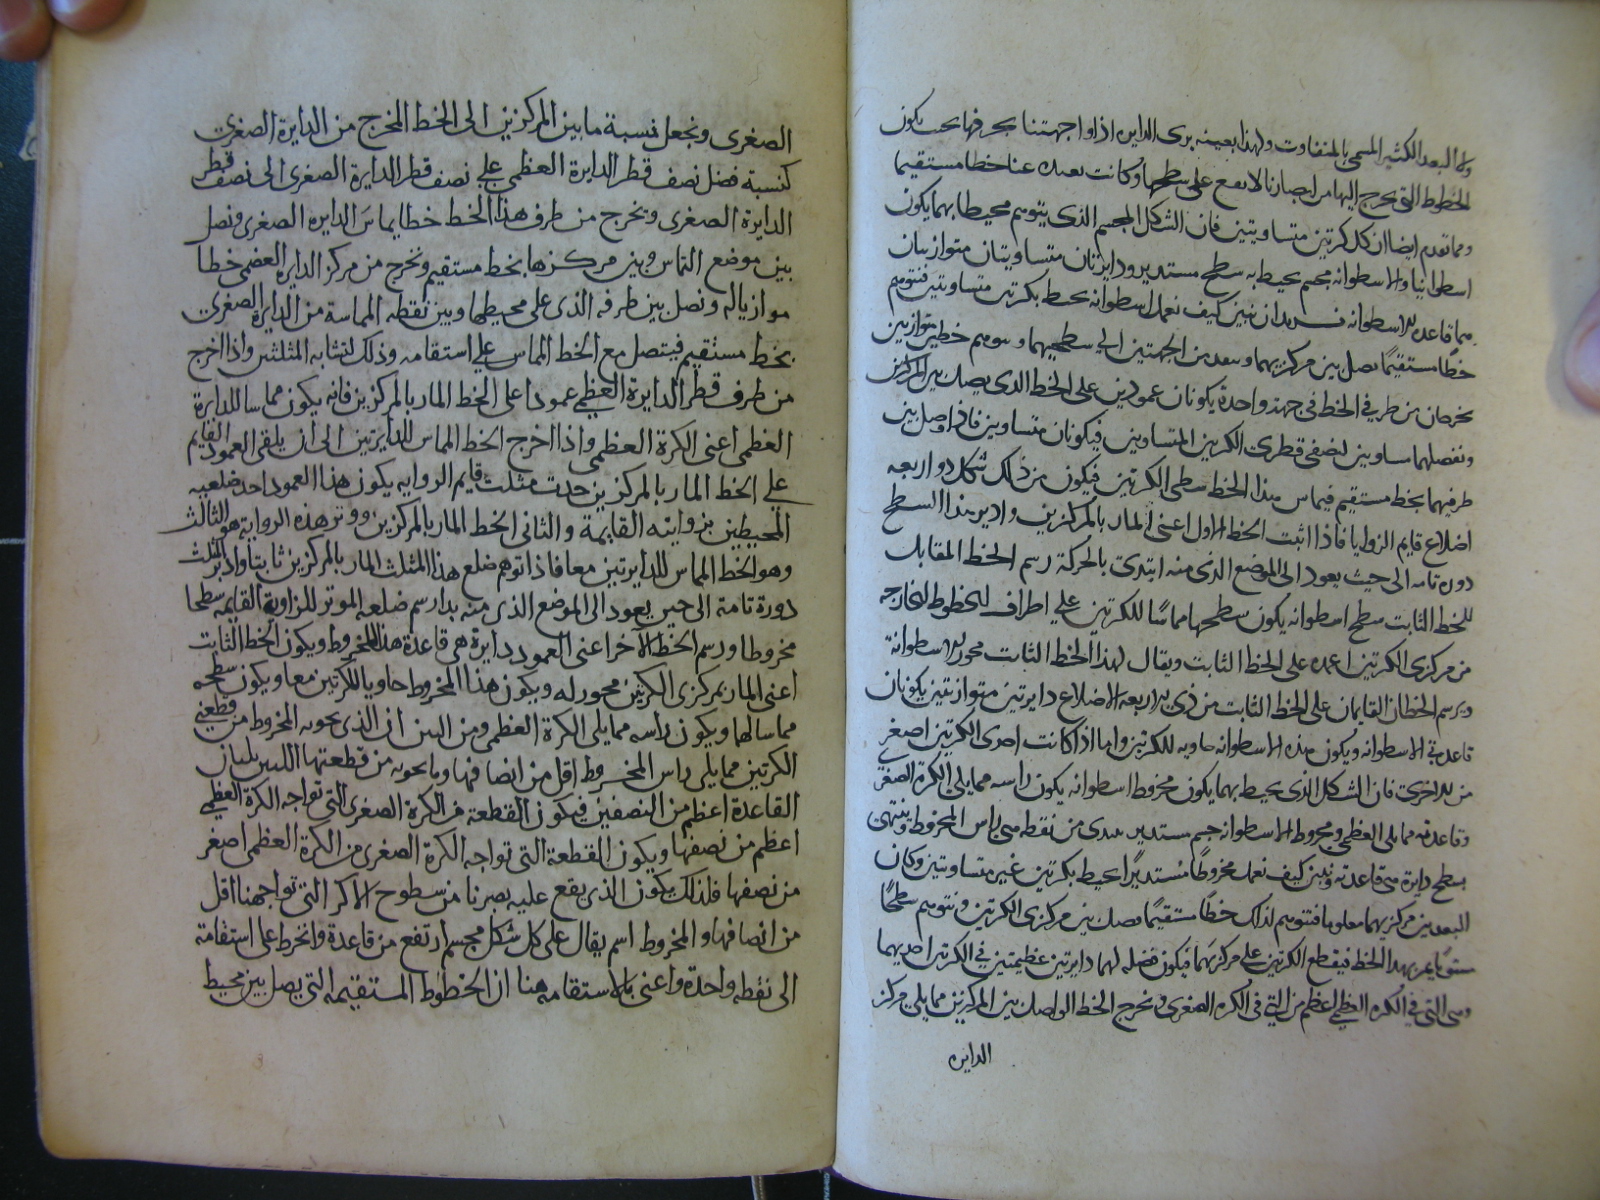 وله البعد الكثير المسمى بالمتفاوت ولهذا بعينه يرى الدايره اذا واجهتنا بحرفها بحيث يكون
الخطوط التى يخرج اليها من ابصارنا لا يقع على سطحها وكانت بعيده عنا خطا مستقيما
ومما تقدم ايضا ان كل كرتين متساويتين فان الشكل المجسم الذى يتوهم محيطا بهما يكون
اسطوانيا والاسطوانه مجسم يحيط به سطح مستدير ودايرتان متساويتان متوازيتان
هما قاعدة الاسطوانه فنريد ان نبين كيف نعمل اسطوانه يحيط بكرتين متساويتين فنتوهم
خطا مستقيما يصل بين مركزيهما وينفد من الجهتين الى سطحيهما ونتوهم خطين متوازيين
يخرجان من طرفى الخط فى جهة واحدة يكونان عمودين على الخط الذى يصل بين المركزين
ونفصلهما مساويين لنصفى قطرى الكرتين المتساويتين فيكونان متساويين فاذا وصل بين
طرفيهما بخط مستقيم فيماس هذا الخط سطحى الكرتين فيكون من ذلك شكل ذو اربعه
اضلاع قايم الزوايا فاذا اثبت الخط الاول اعنى المار بالمركزين وادير هذا السطح
دوره تامه الى حيث يعود الى الموضع الذى منه ابتدى بالحركة رسم الخط المقابل
للخط الثابت سطح اسطوانه يكون سطحها مماسا للكرتين على اطراف الخطوط الخارجه
من مركزى الكرتين اعمده على الخط الثابت ويقال لهذا الخط الثابت محور الاسطوانة
ويرسم الخطان القايمان على الخط الثابت من ذى الاربعه الاضلاع دايرتين متوازيتين يكونان
قاعدتى الاسطوانه ويكون هذه الاسطوانه حاويه للكرتين واما اذا كانت احدى الكرتين اصغر
من الاخرى فان الشكل الذى يحيط بهما يكون مخروط اسطوانه يكون راسه مما يلى الكرة الصغرى
وقاعدته مما يلى العظمى ومخروط الاسطوانه جسم مستدير يبتدى من نقطه هى راس المخروط وينتهى
بسطح دايرة هى قاعدته ونبين كيف نعمل مخروطا مستديرا يحيط بكرتين غير متساويتين وكان
البعد بين مركزيهما معلوما فنتوهم لذلك خطا مستقيما يصل بين مركزى الكرتين ونتوهم سطحا
مستويا يمر بهذا الخط فيقطع الكرتين على مركزيهما فيكون فصله لهما دايرتين عظيمتين فى الكرتين احديهما
وهى التى فى الكره العظمى اعظم من التى فى الكره الصغرى ونخرج الخط الواصل بين المركزين مما يلى مركز
الدايره
الصغرى ونجعل نسبة ما بين المركزين الى الخط المخرج من الدايرة الصغرى
كنسبة فضل نصف قطر الدايرة العظمى على نصف قطر الدايرة الصغرى الى نصف قطر
الدايرة الصغرى ونخرج من طرف هذا الخط خطا يماس الدايره الصغرى ونصل
بين موضع التماس وبين مركزها بخط مستقيم ونخرج من مركز الدايرة العظمى خطا
موازيا له ونصل بين طرفه الذى على محيطها وبين نقطه المماسة من الدايرة الصغرى
بخط مستقيم فيتصل مع الخط المماس على استقامه وذلك لتشابه المثلثين واذا اخرج
من طرف قطر الدايرة العظمى عمودا على الخط المار بالمركزين فانه يكون مماسا للدايرة
العظمى اعنى الكرة العظمى واذا اخرج الخط المماس للدايرتين الى ان يلقى العمود القايم
على الخط المار بالمركزين حدث مثلث قايم الزوايه يكون هذا العمود احد ضلعيه
المحيطين بزوايته القايمة والثانى الخط المار بالمركزين ووتر هذه الزواية هو الثالث
وهو الخط المماس للدايرتين معا فاذا توهم ضلع هذا المثلث المار بالمركزين ثابتا وادير المثلث
دورة تامة الى حين يعود الى الموضع الذى منه بدا رسم ضلعه الموتر للزاوية القايمه سطحا
مخروطا ورسم الخط الاخر اعنى العمود دايرة هى قاعدة هذا المخروط ويكون الخط الثابت
اعنى المار بمركزى الكرتين محور له ويكون هذا المخروط حاويا للكرتين معا ويكون سطحه
مماسا لهما ويكون راسه مما يلى الكرة العظمى ومن البين ان الذى يحويه المخروط من قطعتى
الكرتين مما يلى راس المخروط اقل من انصافها وما يحويه من قطعتيها اللتين يليان
القاعدة اعظم من النصفين فيكون القطعة من الكرة الصغرى التى تواجه الكرة العظمى
اعظم من نصفها ويكون القطعة التى تواجه الكرة الصغرى من الكرة العظمى اصغر
من نصفها فلذلك يكون الذى يقع عليه بصرنا من سطوح الاكر التى تواجهنا اقل
من انصافها والمخروط اسم يقال على كل شكل مجسم ارتفع من قاعدة وانخرط على استقامة
الى نقطه واحدة واعنى بالاستقامه هنا ان الخطوط المستقيمه التى يصل بين محيط